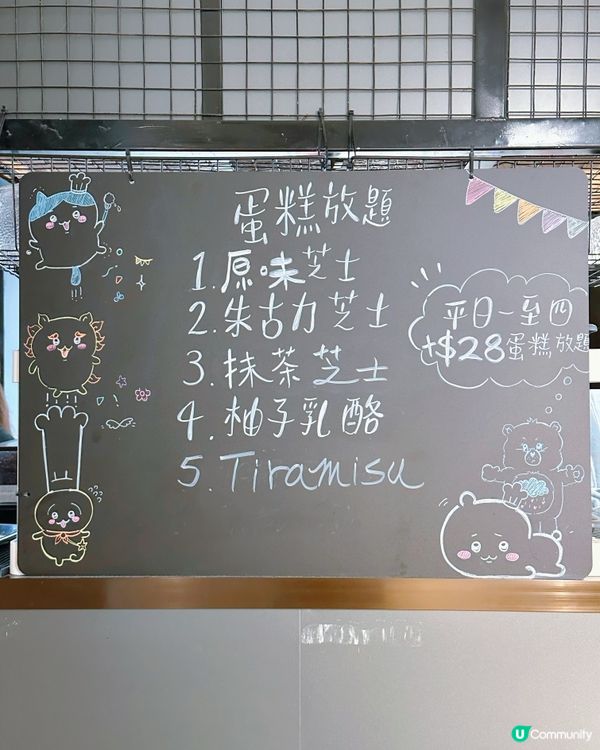 蛋糕放題
1. 原味芝士
2. 朱古力芝士
3. 抹茶芝士
4. 柚子乳酪
5. Tiramisu
平日一至四
+$28蛋糕放題
U Community